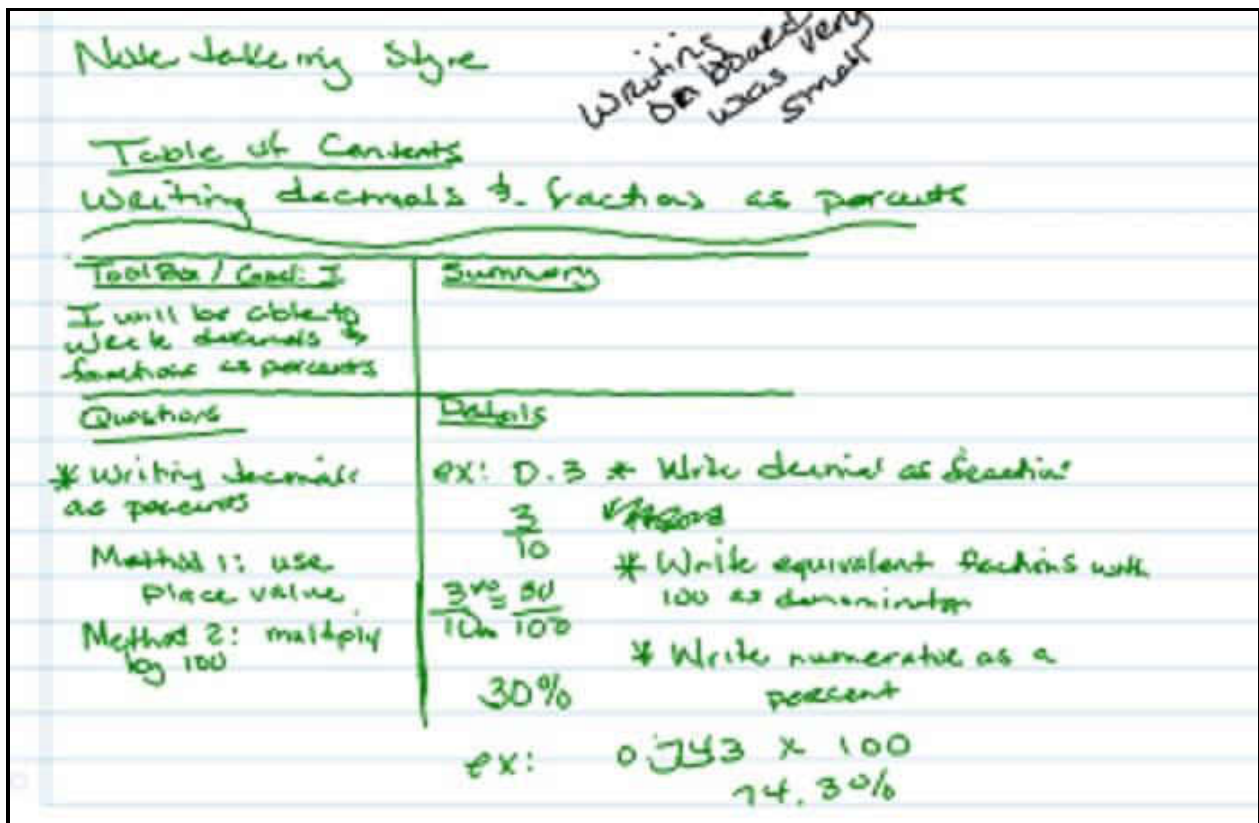 Note taking Style
Writing
on board
was very
small
Table of Contents
Writing decimals & fractions as percents
Tool Box /
Summary
I will be able to
write decimals &
fractions as percents
Questions
Details
* Writing decimals
as percents
Method 1: use
place value
Method 2: multiply
by 100
ex: 0.3 * Write decimal as fraction
3
10
* Write equivalent fractions with
100 as denominator
3 = 30
10 100
* Write numerator as a
percent
30%
ex: 0.743 x 100
74.3%